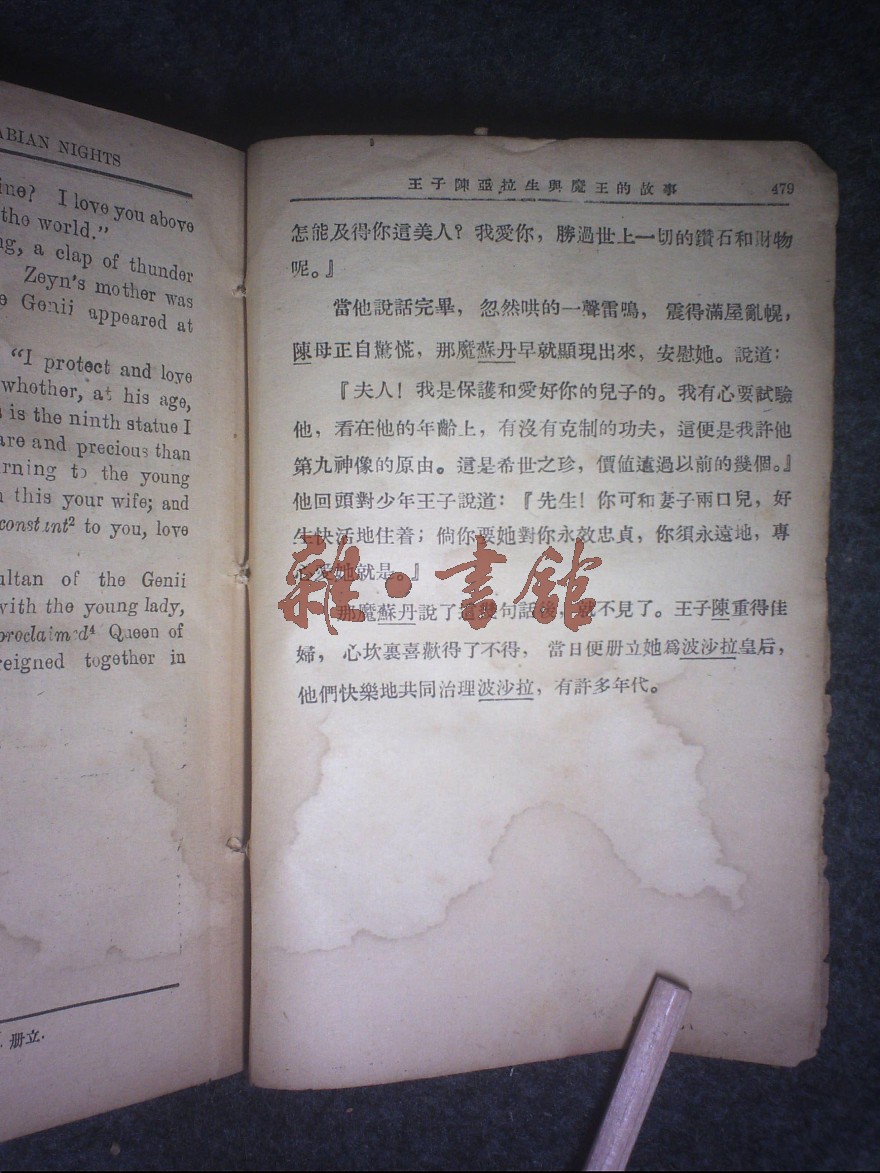 ABIAN NIGHTS
ine? I love you above
the world."
ng, a clap of thunder
Zeyn's mother was
e Genii appeared at
"I protect and love
whether, at his age,
s is the ninth statue I
are and precious than
urning to the young
n this your wife; and
constant² to you, love
ultan of the Genii
with the young lady,
proclaimed⁴ Queen of
reigned together in
册立.
王子陳亞拉生與魔王的故事 479
怎能及得你這美人？我愛你，勝過世上一切的鑽石和財物
呢。』
當他說話完畢，忽然哄的一聲雷鳴，震得滿屋亂幌，
陳母正自驚慌，那魔蘇丹早就顯現出來，安慰她。說道：
『夫人！我是保護和愛好你的兒子的。我有心要試驗
他，看在他的年齡上，有沒有克制的功夫，這便是我許他
第九神像的原由。這是希世之珍，價値遠過以前的幾個。』
他回頭對少年王子說道：『先生！你可和妻子兩口兒，好
生快活地住着；倘你要她對你永效忠貞，你須永遠地，專
心愛她就是。』
那魔蘇丹說了這幾句話後，就不見了。王子陳重得佳
婦，心坎裏喜歡得了不得，當日便册立她爲波沙拉皇后，
他們快樂地共同治理波沙拉，有許多年代。
雜·書館